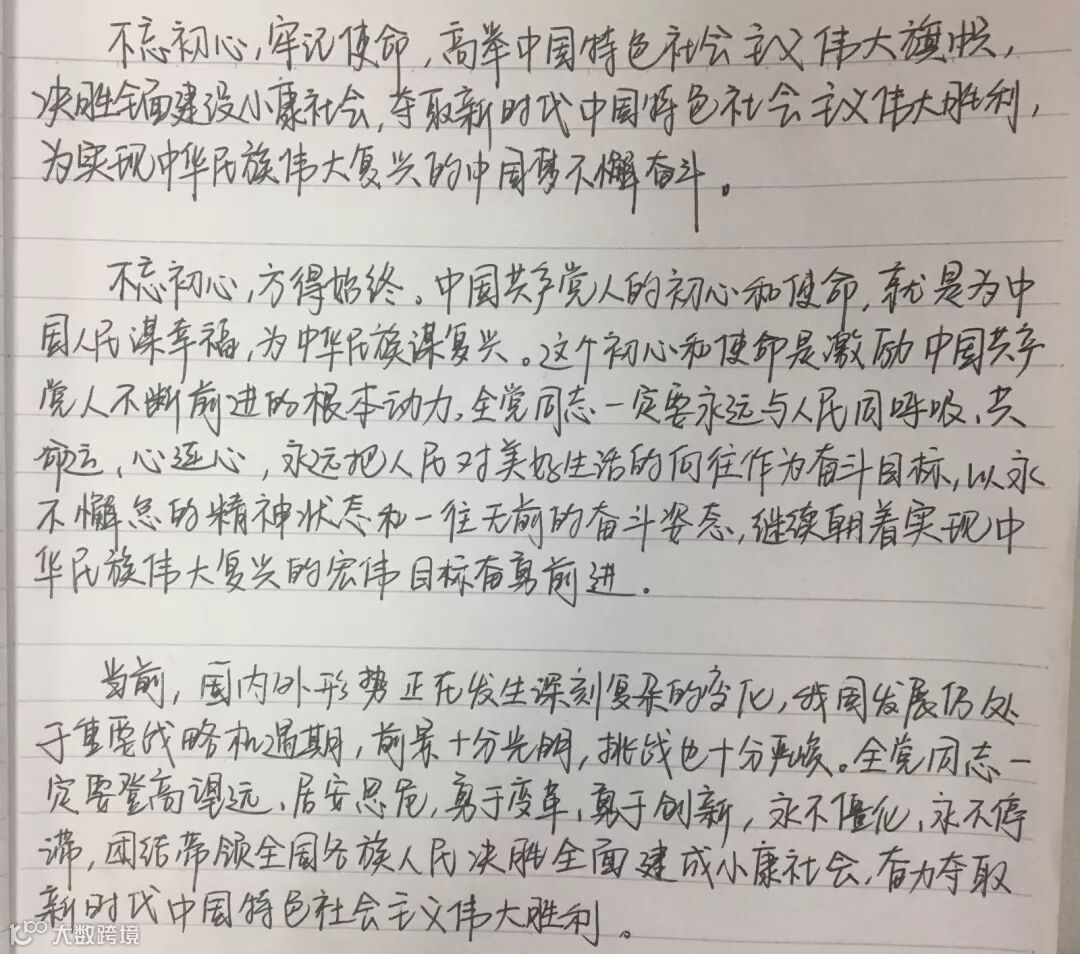 不忘初心,牢记使命,高举中国特色社会主义伟大旗帜,
决胜全面建设小康社会,夺取新时代中国特色社会主义伟大胜利,
为实现中华民族伟大复兴的中国梦不懈奋斗。
不忘初心,方得始终。中国共产党人的初心和使命,就是为中
国人民谋幸福,为中华民族谋复兴。这个初心和使命是激励中国共产
党人不断前进的根本动力。全党同志一定要永远与人民同呼吸、共
命运、心连心,永远把人民对美好生活的向往作为奋斗目标,以永
不懈怠的精神状态和一往无前的奋斗姿态,继续朝着实现中
华民族伟大复兴的宏伟目标奋勇前进。
当前,国内外形势正在发生深刻复杂的变化,我国发展仍处
于重要战略机遇期,前景十分光明,挑战也十分严峻。全党同志一
定要登高望远、居安思危,勇于变革、勇于创新,永不僵化、永不停
滞,团结带领全国各族人民决胜全面建成小康社会,奋力夺取
新时代中国特色社会主义伟大胜利。
大数跨境